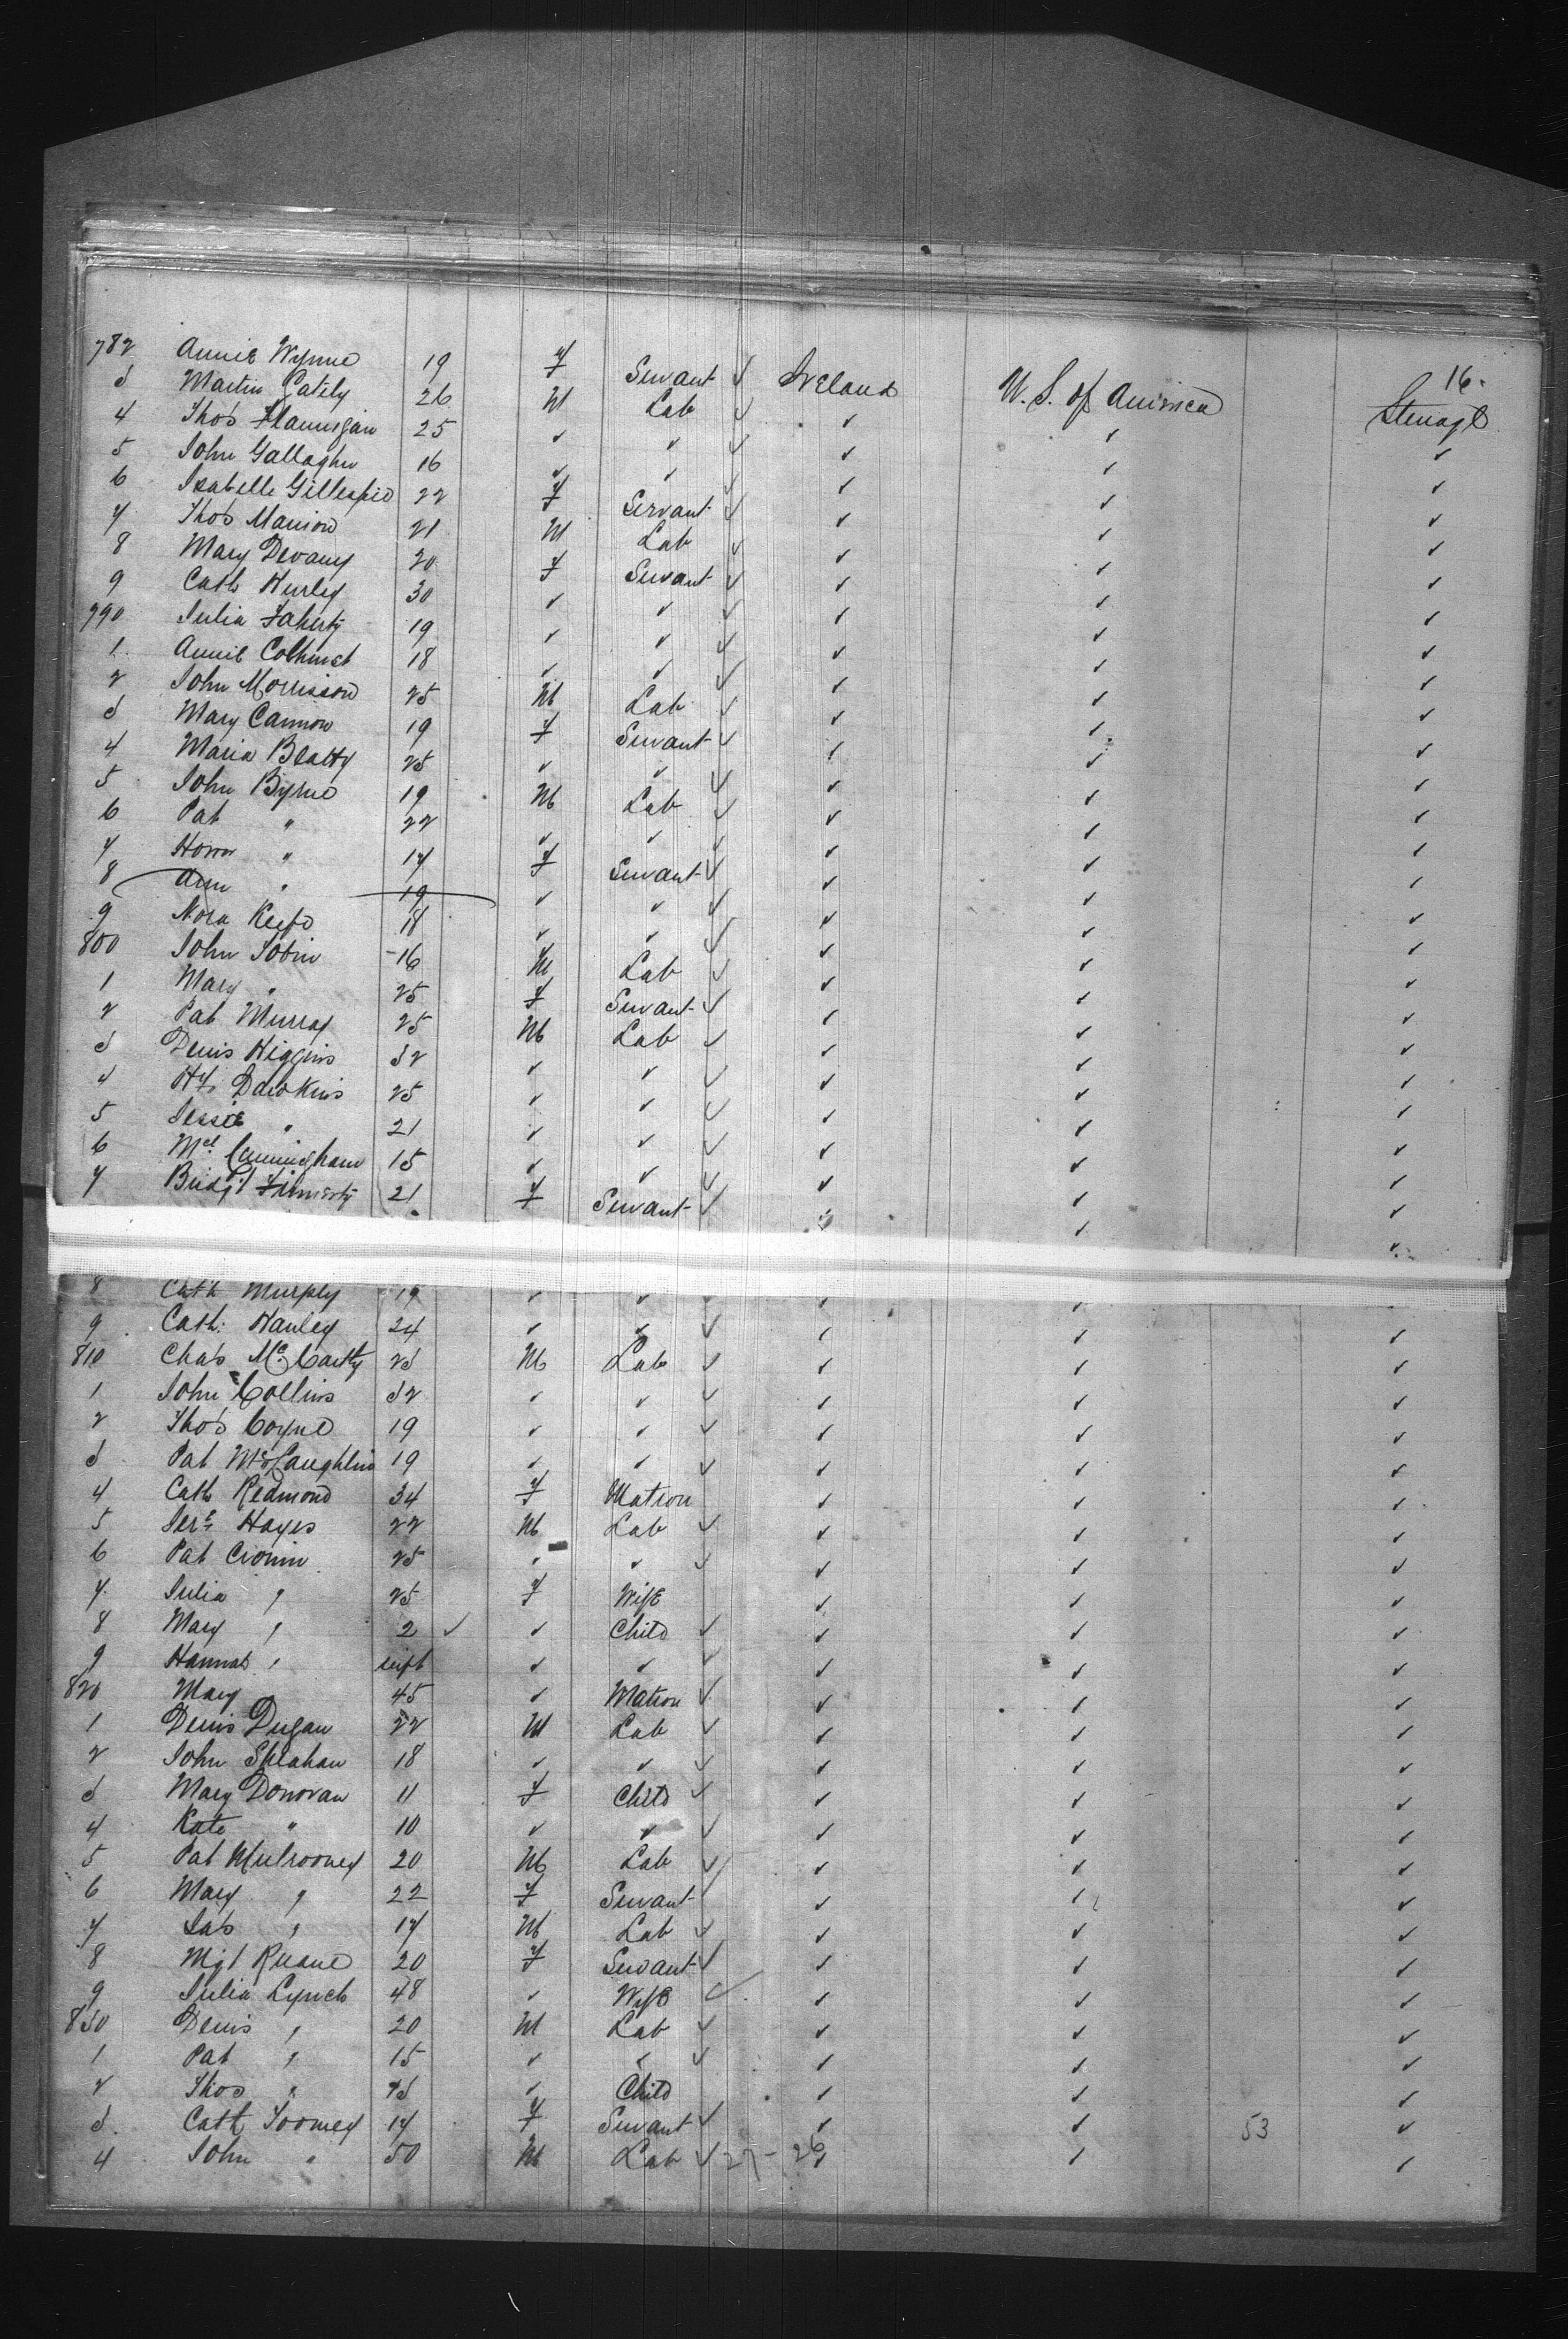 16.
782 Annie Wynne 19 F Servant ✓ Ireland U.S. of America Steerage
3 Martin Gately 26 M Lab ✓ ✓ ✓ ✓
4 Thos Flannigan 25 ✓ ✓ ✓ ✓ ✓ ✓
5 John Gallagher 16 ✓ ✓ ✓ ✓ ✓ ✓
6 Isabelle Gillespie 22 F Servant ✓ ✓ ✓ ✓
7 Thos Manion 21 M Lab ✓ ✓ ✓ ✓
8 Mary Devany 20 F Servant ✓ ✓ ✓ ✓
9 Cath Hurley 30 ✓ ✓ ✓ ✓ ✓ ✓
790 Julia Faherty 19 ✓ ✓ ✓ ✓ ✓ ✓
1 Annie 18 ✓ ✓ ✓ ✓ ✓ ✓
2 John Morrisson 25 M Lab ✓ ✓ ✓ ✓
3 Mary Cannon 19 F Servant ✓ ✓ ✓ ✓
4 Maria Beatty 25 ✓ ✓ ✓ ✓ ✓ ✓
5 John Byrne 19 M Lab ✓ ✓ ✓ ✓
6 Pat " 22 ✓ ✓ ✓ ✓ ✓ ✓
7 Honor " 17 F Servant ✓ ✓ ✓ ✓
8 Ann " 19 ✓ ✓ ✓ ✓ ✓ ✓
9 Nora Keefe 18 ✓ ✓ ✓ ✓ ✓ ✓
800 John Tobin 16 M Lab ✓ ✓ ✓ ✓
1 Mary " 25 F Servant ✓ ✓ ✓ ✓
2 Pat Murray 25 M Lab ✓ ✓ ✓ ✓
3 Denis Higgins 32 ✓ ✓ ✓ ✓ ✓ ✓
4 Hy. Dawkins 25 ✓ ✓ ✓ ✓ ✓ ✓
5 Jessie " 21 ✓ ✓ ✓ ✓ ✓ ✓
6 Ml Cunningham 15 ✓ ✓ ✓ ✓ ✓ ✓
7 Bridgt Finnerty 21 F Servant ✓ ✓ ✓ ✓
8 Cath Murphy 19 ✓ ✓ ✓ ✓ ✓ ✓
9 Cath: Hanley 24 ✓ ✓ ✓ ✓ ✓ ✓
810 Chas McCarthy 23 M Lab ✓ ✓ ✓ ✓
1 John Collins 32 ✓ ✓ ✓ ✓ ✓ ✓
2 Thos Coyne 19 ✓ ✓ ✓ ✓ ✓ ✓
3 Pat McLaughlin 19 ✓ ✓ ✓ ✓ ✓ ✓
4 Cath Redmond 34 F Matron ✓ ✓ ✓
5 Jere Hayes 22 M Lab ✓ ✓ ✓ ✓
6 Pat Cronin 25 ✓ ✓ ✓ ✓ ✓ ✓
7 Julia " 25 F Wife ✓ ✓ ✓
8 Mary " 2 ✓ ✓ Child ✓ ✓ ✓ ✓
9 Hannah " inft ✓ ✓ ✓ ✓ ✓ ✓
820 Mary " 45 ✓ Matron ✓ ✓ ✓ ✓
1 Denis Dugan 22 M Lab ✓ ✓ ✓ ✓
2 John Sheahan 18 ✓ ✓ ✓ ✓ ✓ ✓
3 Mary Donovan 11 F Child ✓ ✓ ✓ ✓
4 Kate " 10 ✓ ✓ ✓ ✓ ✓ ✓
5 Pat Mulrooney 20 M Lab ✓ ✓ ✓ ✓
6 Mary " 22 F Servant ✓ ✓ ✓ ✓
7 Jas " 17 M Lab ✓ ✓ ✓ ✓
8 Mgt Ruane 20 F Servant ✓ ✓ ✓ ✓
9 Julia Lynch 48 ✓ Wife ✓ ✓ ✓ ✓
830 Denis " 20 M Lab ✓ ✓ ✓ ✓
1 Pat " 15 ✓ ✓ ✓ ✓ ✓ ✓
2 Thos " ✓ Child ✓ ✓ ✓
3 Cath Toomey 17 F Servant ✓ ✓ ✓ 53 ✓
4 John " 50 M Lab ✓ 27 - 26 ✓ ✓ ✓